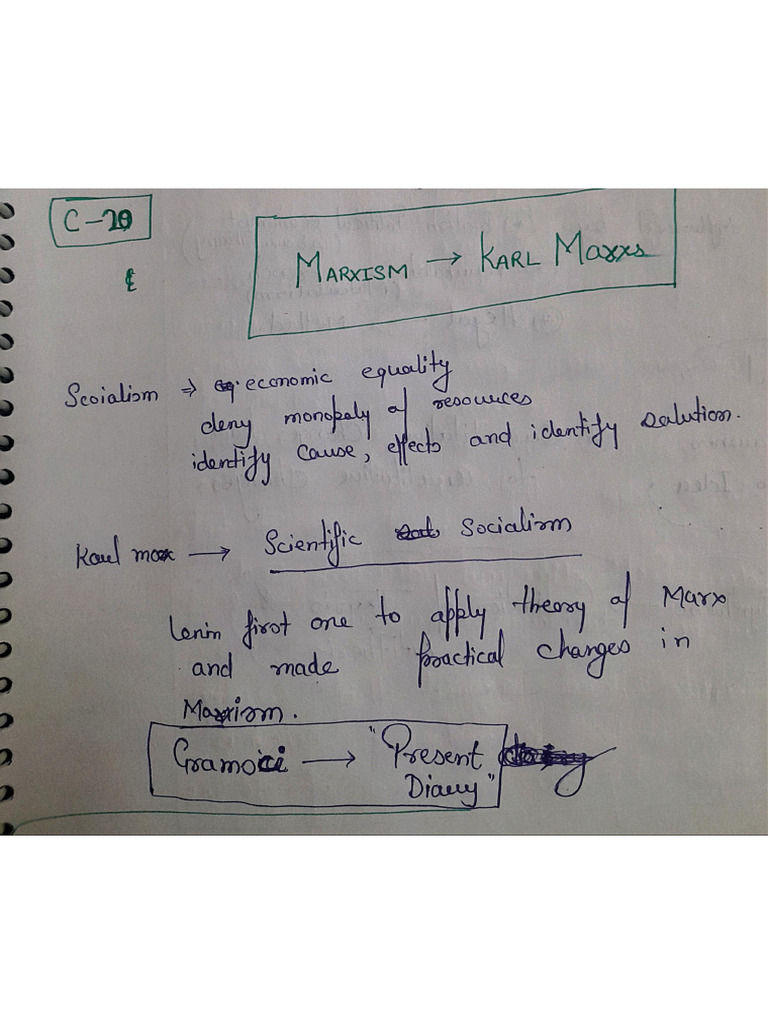 C-20
MARXISM → KARL Marxs
Scoialism ⇒ economic equality
deny monopoly of resources
identify cause, effects and identify solution.
Karl max → Scientific Socialism
Lenin first one to apply theory of Marx
and made practical changes in
Marxism.
Gramsci → "Present
Diary"